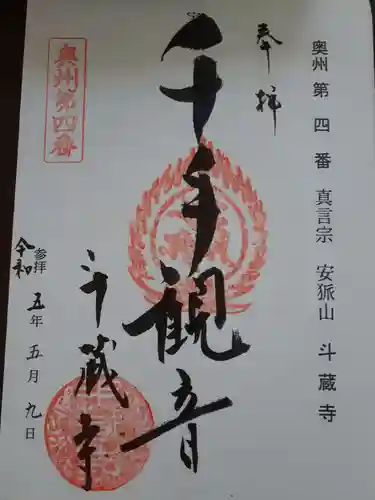 奥州 第四番 真言宗 安狐山 斗蔵寺
奉拝
千手観音
斗蔵寺
奥州第四番
参拝
令和五年五月九日